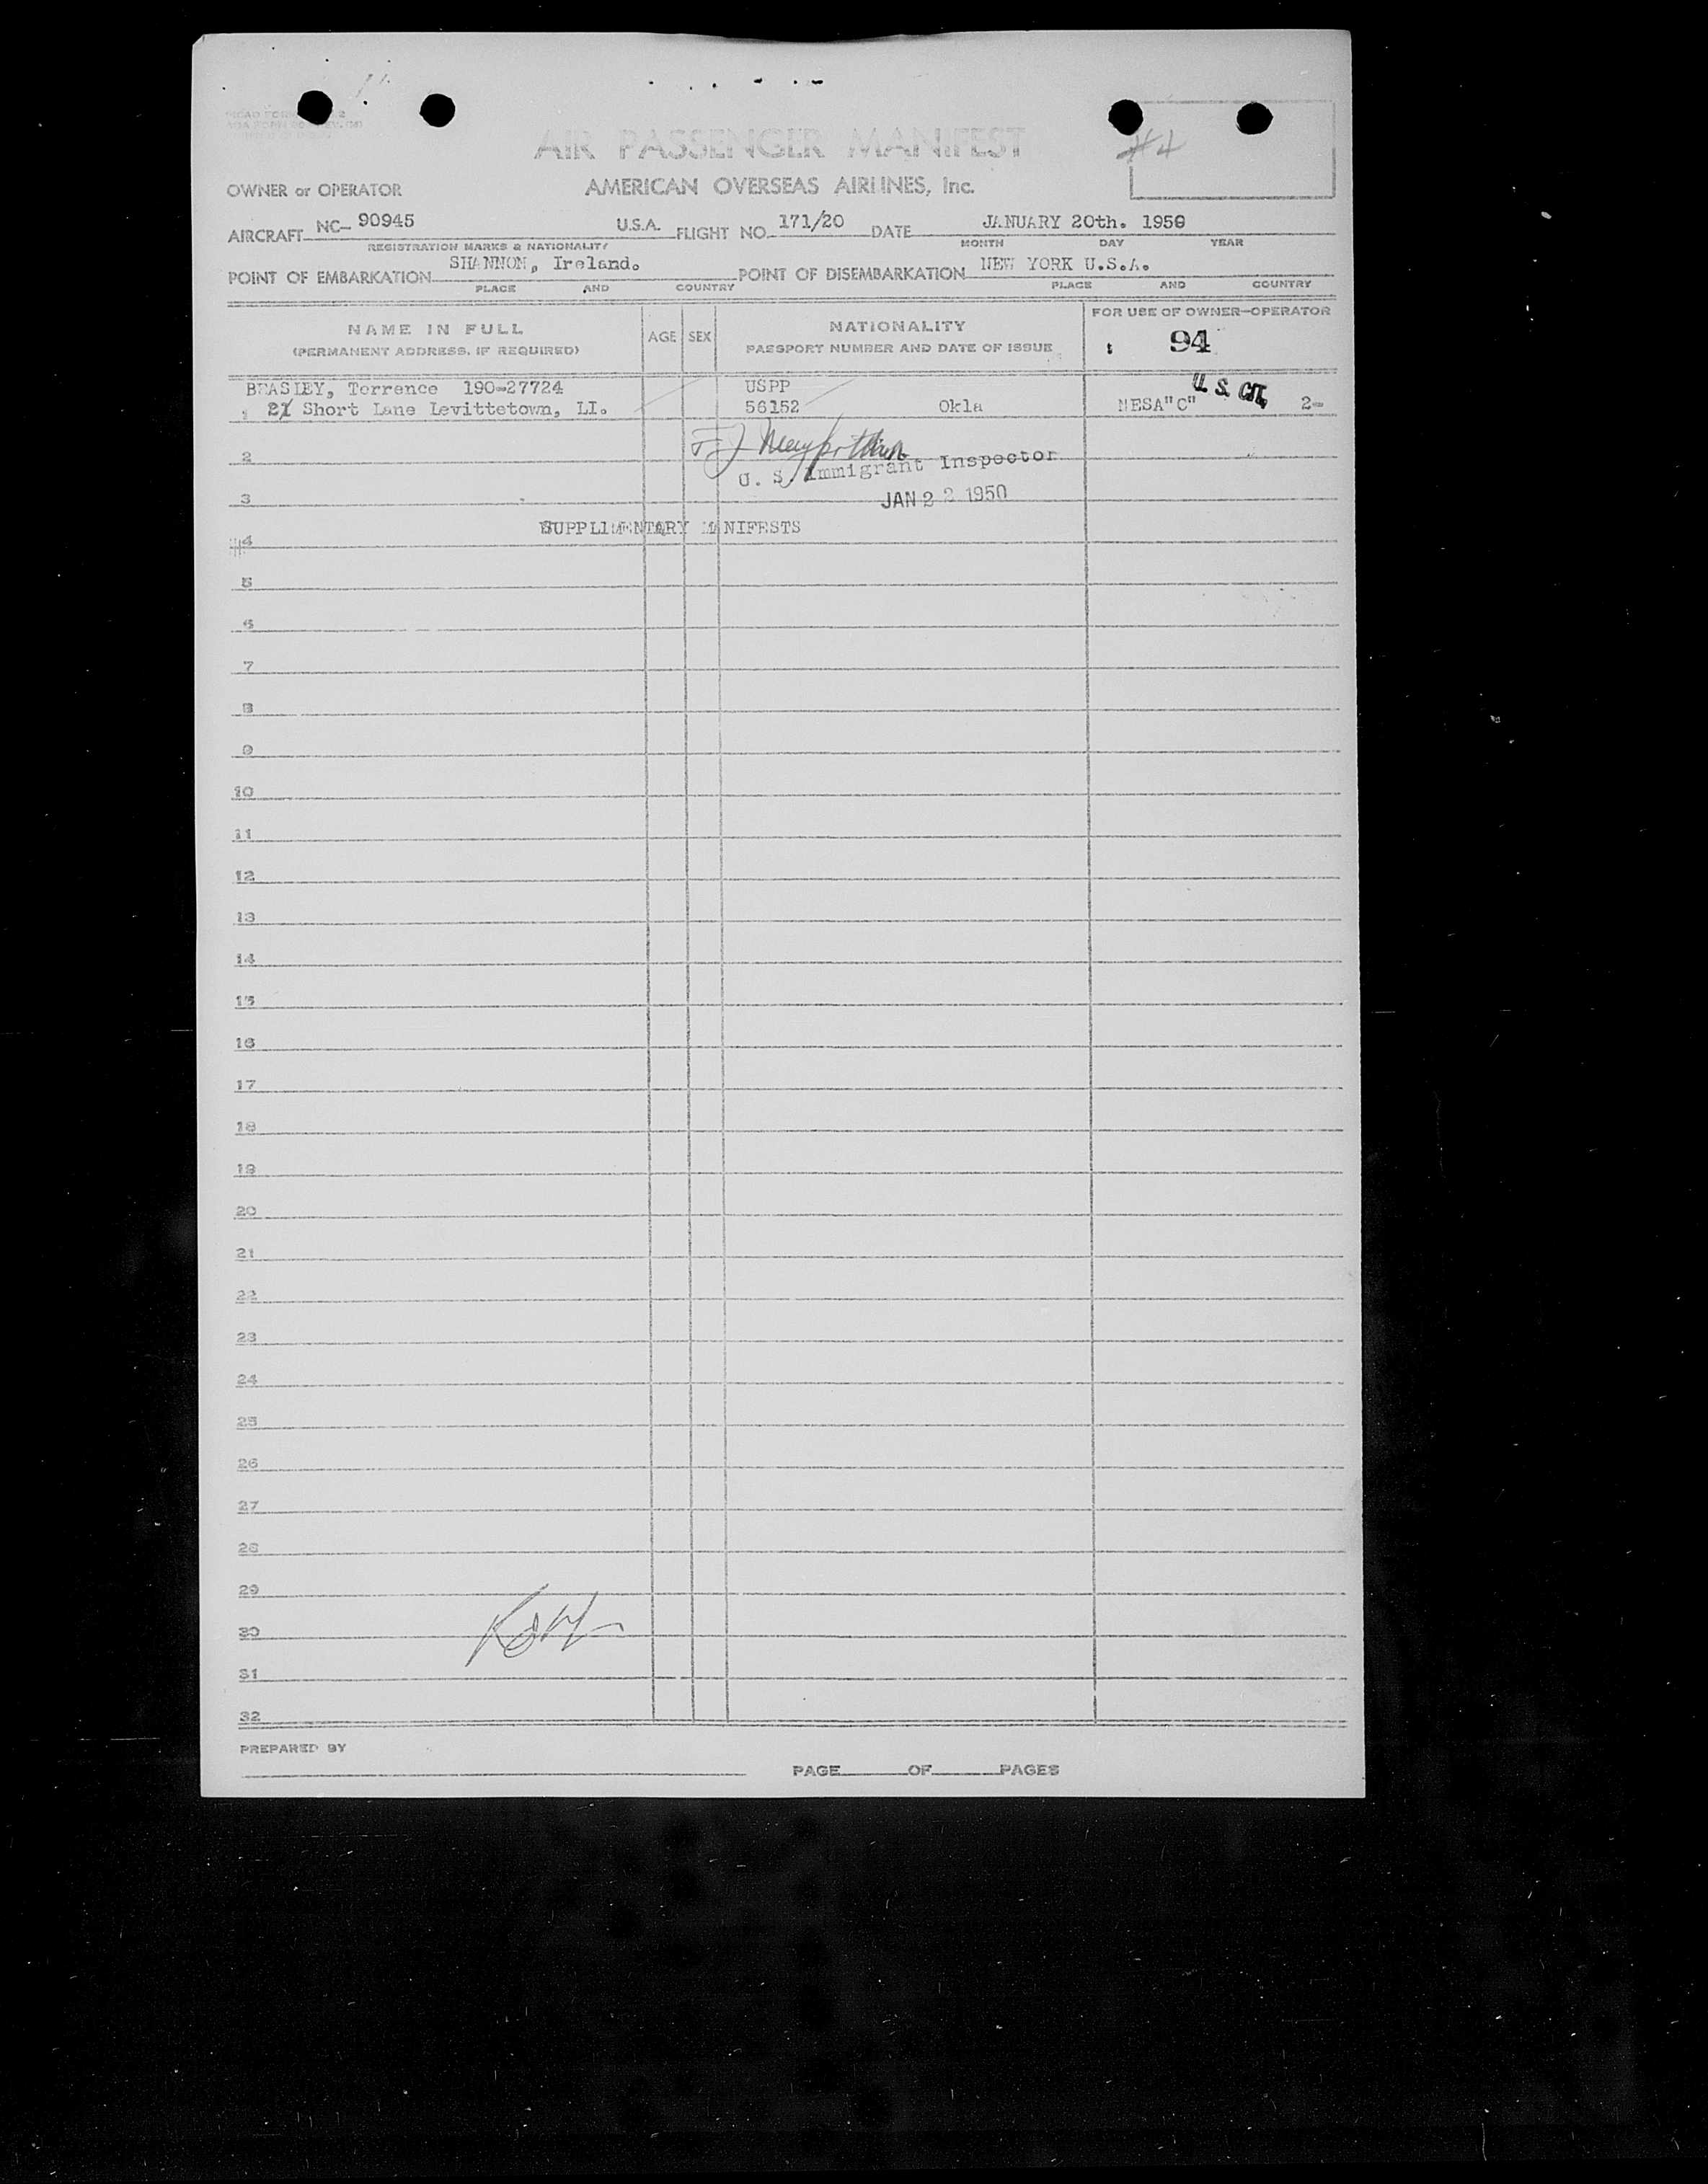 AIR PASSENGER MANIFEST
#4
OWNER or OPERATOR AMERICAN OVERSEAS AIRLINES, Inc.
AIRCRAFT NC- 90945 U.S.A. FLIGHT NO. 171/20 DATE JANUARY 20th. 1950
REGISTRATION MARKS & NATIONALITY MONTH DAY YEAR
POINT OF EMBARKATION SHANNON, Ireland. POINT OF DISEMBARKATION NEW YORK U.S.A.
PLACE AND COUNTRY PLACE AND COUNTRY
NAME IN FULL AGE SEX NATIONALITY FOR USE OF OWNER-OPERATOR
(PERMANENT ADDRESS, IF REQUIRED) PASSPORT NUMBER AND DATE OF ISSUE 94
BEASLEY, Terrence 190-27724 USPP U. S. CIT.
1 Short Lane Levittetown, LI. 56152 Okla MESA"C" 2-
2
U. S. Immigrant Inspector
3 JAN 22 1950
SUPPLIMENTARY MANIFESTS
4
5
6
7
8
9
10
11
12
13
14
15
16
17
18
19
20
21
22
23
24
25
26
27
28
29
30
31
32
PREPARED BY
PAGE OF PAGES